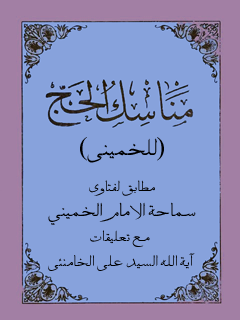 مَنَاسِكُ الحَجّ
(للخميني)
مطابق لفتاوى
سماحة الامام الخميني
مع تعليقات
آية الله السيد على الخامنئى